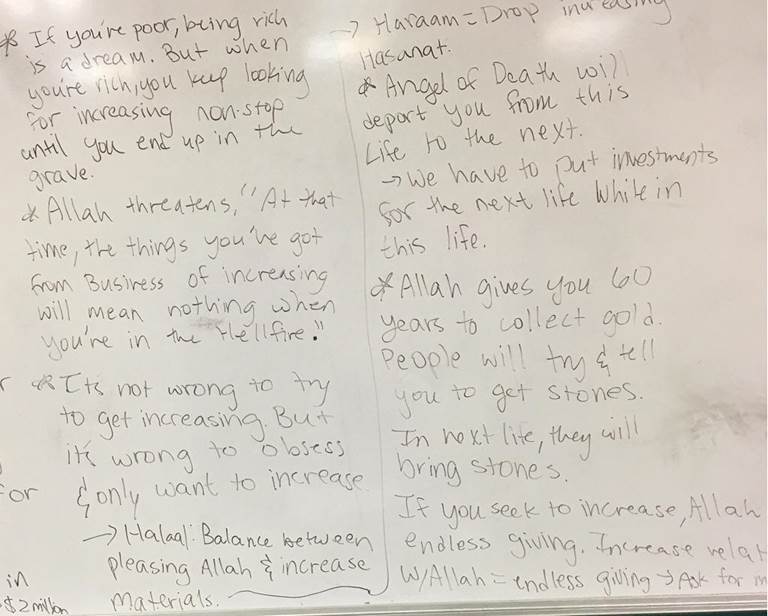 * If you're poor, being rich
is a dream. But when
you're rich, you keep looking
for increasing non-stop
until you end up in the
grave.
* Allah threatens, "At that
time, the things you've got
from Business of increasing
will mean nothing when
you're in the Hellfire."
* It's not wrong to try
to get increasing. But
it's wrong to obsess
for & only want to increase
→ Halaal: Balance between
pleasing Allah & increase
in
materials.
$2 million
→ Haraam = Drop increasing
Hasanat.
* Angel of Death will
deport you from this
Life to the next.
→ We have to put investments
for the next life while in
this life.
* Allah gives you 60
years to collect gold.
People will try & tell
you to get stones.
In next life, they will
bring stones.
If you seek to increase, Allah
endless giving. Increase relat
w/Allah = endless giving → Ask for m